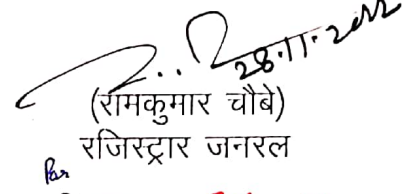 28.11.2022
(रामकुमार चौबे)
रजिस्ट्रार जनरल